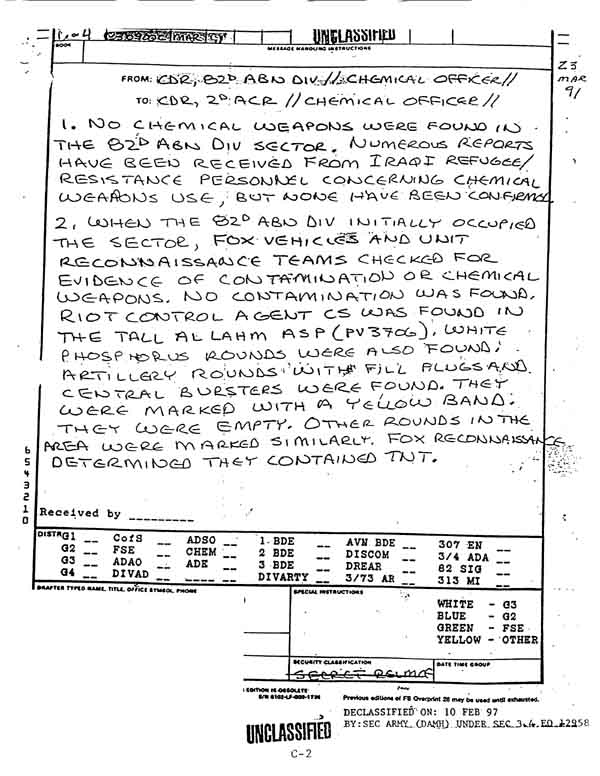 1 of 4 UNCLASSIFIED
BOOK MESSAGE HANDLING INSTRUCTIONS
23
MAR
91
FROM: CDR, 82D ABN DIV // CHEMICAL OFFICER //
TO: CDR, 2D ACR // CHEMICAL OFFICER //
1. NO CHEMICAL WEAPONS WERE FOUND IN
THE 82D ABN DIV SECTOR. NUMEROUS REPORTS
HAVE BEEN RECEIVED FROM IRAQI REFUGEE/
RESISTANCE PERSONNEL CONCERNING CHEMICAL
WEAPONS USE, BUT NONE HAVE BEEN CONFIRMED.
2. WHEN THE 82D ABN DIV INITIALLY OCCUPIED
THE SECTOR, FOX VEHICLES AND UNIT
RECONNAISSANCE TEAMS CHECKED FOR
EVIDENCE OF CONTAMINATION OR CHEMICAL
WEAPONS. NO CONTAMINATION WAS FOUND.
RIOT CONTROL AGENT CS WAS FOUND IN
THE TALL AL LAHM ASP (PV3706). WHITE
PHOSPHORUS ROUNDS WERE ALSO FOUND.
ARTILLERY ROUNDS WITH FILL PLUGS AND
CENTRAL BURSTERS WERE FOUND. THEY
WERE MARKED WITH A YELLOW BAND.
THEY WERE EMPTY. OTHER ROUNDS IN THE
AREA WERE MARKED SIMILARLY. FOX RECONNAISSANCE
DETERMINED THEY CONTAINED TNT.
6
5
4
3
2
1
0
Received by _________
DISTR G1 __ CofS __ ADSO __ 1 BDE __ AVN BDE __ 307 EN __
G2 __ FSE __ CHEM __ 2 BDE __ DISCOM __ 3/4 ADA __
G3 __ ADAO __ ADE __ 3 BDE __ DREAR __ 82 SIG __
G4 __ DIVAD __ _____ __ DIVARTY __ 3/73 AR __ 313 MI __
DRAFTER TYPED NAME, TITLE, OFFICE SYMBOL, PHONE SPECIAL INSTRUCTIONS
WHITE - G3
BLUE - G2
GREEN - FSE
YELLOW - OTHER
SECURITY CLASSIFICATION DATE TIME GROUP
SECRET
EDITION IS OBSOLETE
S/N 0102-LF-000-1736 Previous editions of FS Overprint 26 may be used until exhausted.
DECLASSIFIED ON: 10 FEB 97
UNCLASSIFIED BY: SEC ARMY (DAMH) UNDER SEC 3.4 EO 12958
C-2